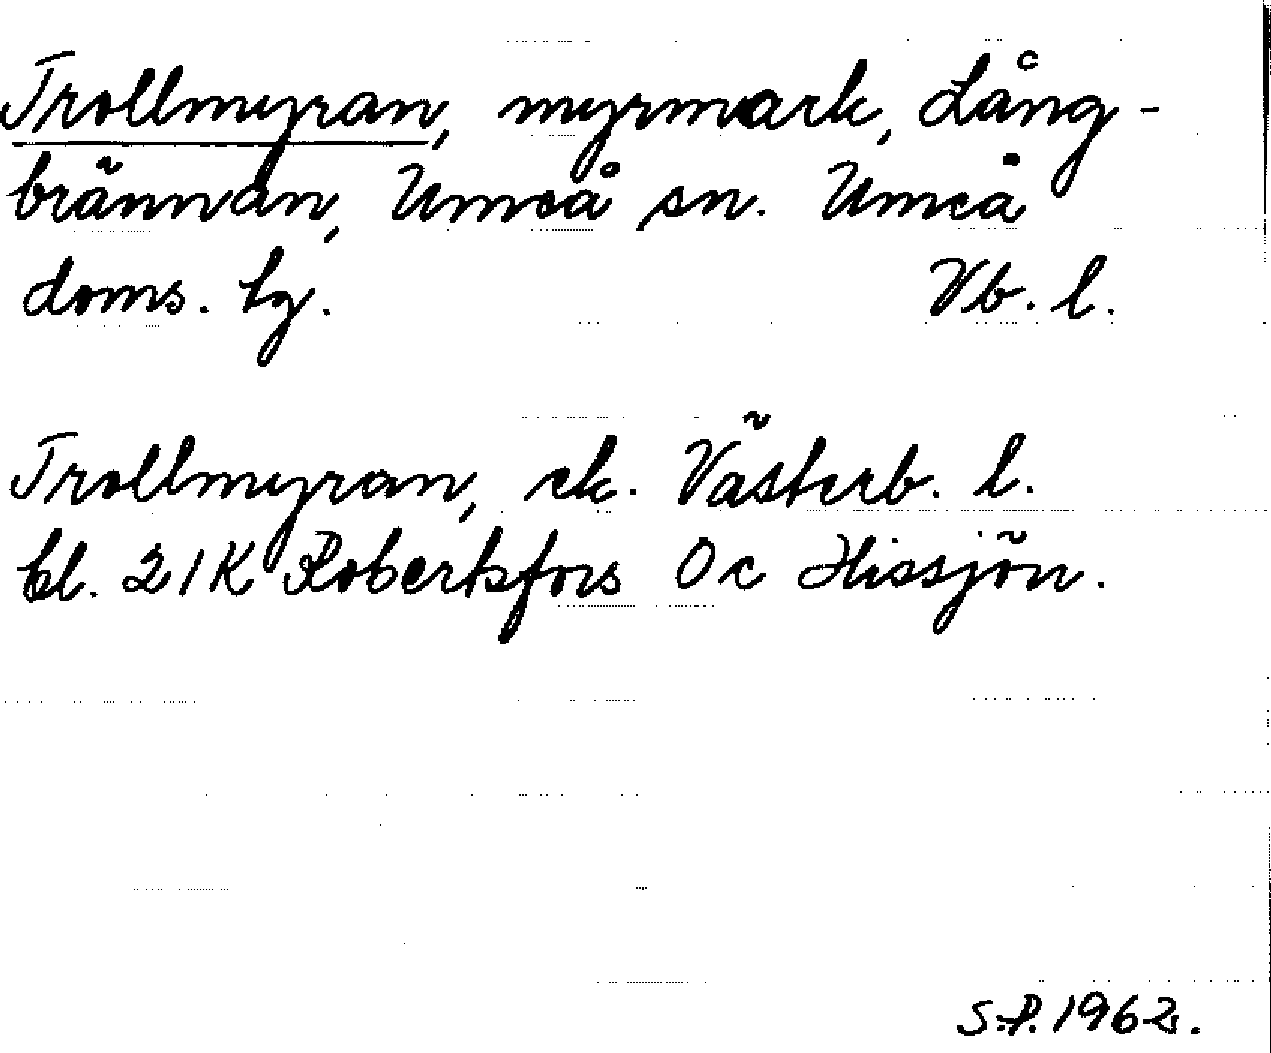 Trollmyran, myrmark, Lång-
brännan, Umeå sn. Umeå
doms. tg. Vb. l.
Trollmyran, ek. Västerb. l.
bl. 21K Robertsfors 0c Hissjön.
S.P. 1962.